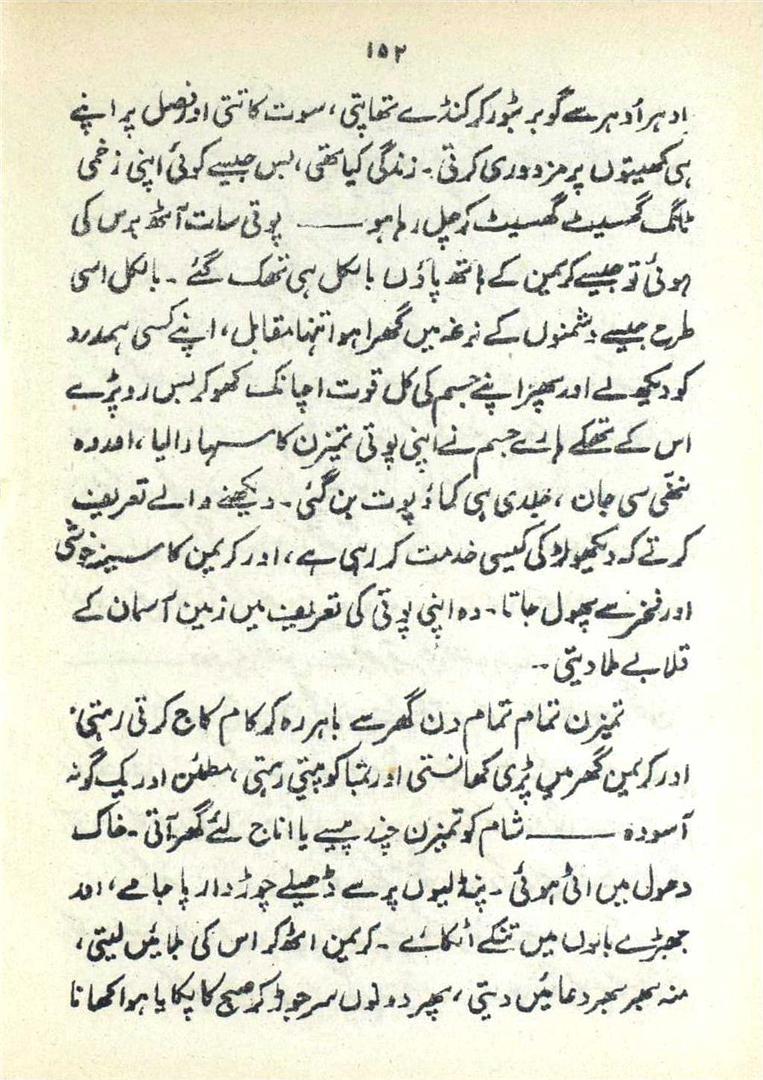 ۱۵۲
ادہر اُدہر سے گوبر بٹور کر کنڈے تھاپتی، سوت کاتتی اور فصل پر اپنے
ہی کھیتوں پر مزدوری کرتی۔ زندگی کیا تھی، بس جیسے کوئی اپنی زخمی
ٹانگ گھسیٹ گھسیٹ کر چل رہا ہو —— پوتی سات آٹھ برس کی
ہوئی تو جیسے کریمن کے ہاتھ پاؤں بالکل ہی تھک گئے۔ بالکل اسی
طرح جیسے دشمنوں کے نرغہ میں گھرا ہوا تنہا مقابل، اپنے کسی ہمدرد
کو دیکھ لے اور پھر اپنے جسم کی کل قوت اچانک کھو کر بس رو پڑے
اس کے تھکے ہارے جسم نے اپنی پوتی تمیزن کا سہارا لیا، اور وہ
ننھی سی جان، جلدی ہی کماؤ پوت بن گئی۔ دیکھنے والے تعریف
کرتے کہ دیکھو لڑکی کیسی خدمت کر رہی ہے، اور کریمن کا سینہ خوشی
اور فخر سے پھول جاتا۔ وہ اپنی پوتی کی تعریف میں زمین آسمان کے
قلابے ملا دیتی۔۔
تمیزن تمام تمام دن گھر سے باہر رہ کر کام کاج کرتی رہتی۔
اور کریمن گھر میں پڑی کھانستی اور تمباکو پیتی رہتی، مطمئن اور یک گونہ
آسودہ —— شام کو تمیزن چند پیسے یا اناج لئے گھر آتی۔ خاک
دھول میں اٹی ہوئی۔ پنڈلیوں پر سے ڈھیلے چوڑدار پاجامے، اور
جھبڑے بالوں میں تنکے اٹکائے۔ کریمن اٹھ کر اس کی بلائیں لیتی،
منہ بھر بھر دعائیں دیتی، پھر دونوں سر جوڑ کر صبح کا پکایا ہوا کھانا